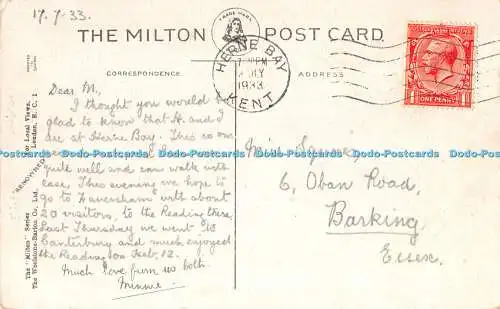 17.7.33.
TRADE MARK
THE MILTON POST CARD
CORRESPONDENCE
ADDRESS
HERNE BAY
KENT
PM
JLY
1933
ONE PENNY
Dear M,
I thought you would be
glad to know that H. and I
are at Herne Bay. This is our
quite well and can walk with
ease. This evening we hope to
go to Faversham with about
20 visitors, to the Reading there.
Last Thursday we went to
Canterbury and much enjoyed
the Reading on Heb. 12.
Much love from us both.
Minnie.
Miss Squire,
6, Oban Road,
Barking,
Essex.
The "Milton" Series
The Woolstone-Barton Co. Ltd.
RENOWNED
for Local Views.
London, E.C. 1
Postcards Database Postcards Database Postcards Database Postcards Database Postcards Database